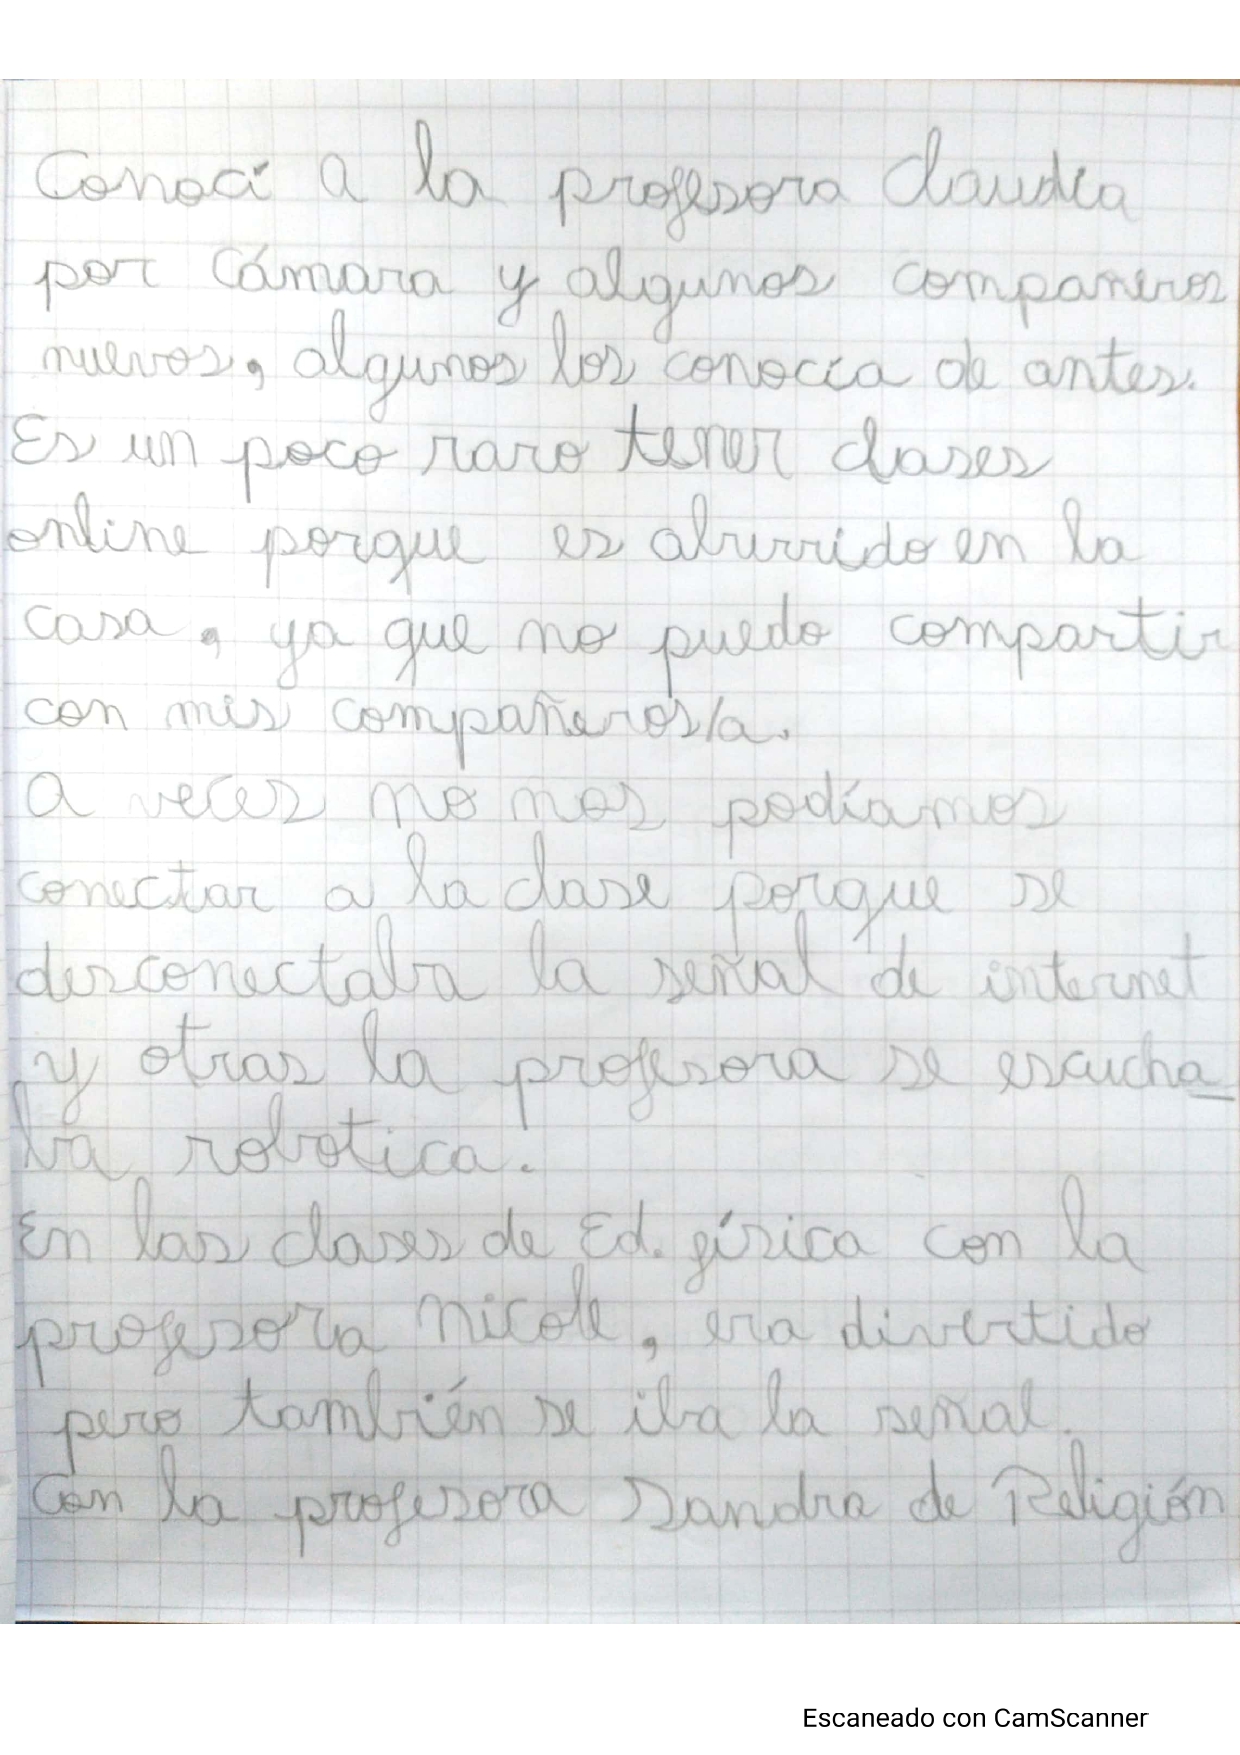 Conocí a la profesora Claudia
por Cámara y algunos compañeros
nuevos, algunos los conocía de antes.
Es un poco raro tener clases
online porque es aburrido en la
casa, ya que no puedo compartir
con mis compañeros/a.
A veces no nos podíamos
conectar a la clase porque se
desconectaba la señal de internet
y otras la profesora se escucha_
ba robotica.
En las clases de Ed. física con la
profesora Nicole, era divertido
pero también se iba la señal.
Con la profesora Sandra de Religión
Escaneado con CamScanner